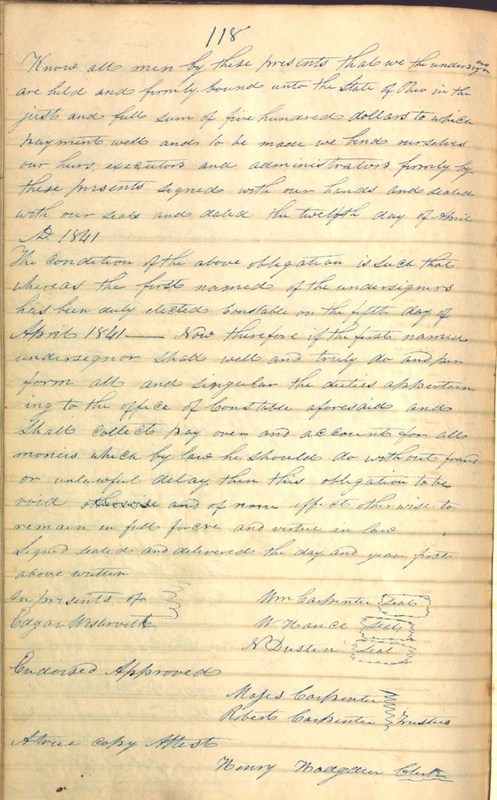 118
Know all men by these presents that we the undersigners
are held and firmly bound unto the State of Ohio in the
just and full sum of five hundred dollars to which
payment well and to be made we bind ourselves
our heirs, executors and administrators firmly by
these presents signed with our hands and sealed
with our seals and dated the twelfth day of April
AD. 1841
The condition of the above obligation is such that
whereas the first named of the undersigners
has been duly elected Constable on the fifth day of
April 1841 — Now therefore if the first named
undersignor shall well and truly do and per
form all and singular the duties appertain
ing to the office of Constable aforesaid and
shall collect pay over and account for all
moneis which by law he should do without fraud
or unlawful delay then this obligation to be
void otherwise and of none effect otherwise to
remain in full force and virtue in law
Signed sealed and delivered the day and year first
above written
In presents of
Wm Carpenter Seal
Edgar
W. Hance Seal
N Dusten Seal
Endorsed Approved
Moses Carpenter
Robert Carpenter Trustees
A true copy Attest
Henry Hodgden Clerk